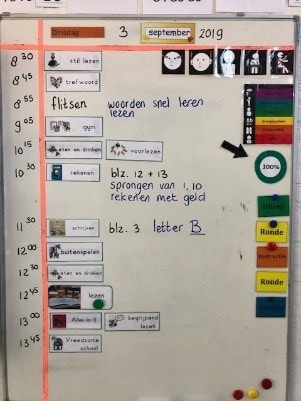 Dinsdag 3 september 2019
8 30 stil lezen
8 45 trefwoord
8 55 flitsen woorden snel leren
lezen
9 05 gym
10 15 eten en drinken voorlezen
10 30 rekenen blz. 12 + 13
sprongen van 1, 10
rekenen met geld
100%
11 30 schrijven blz. 3 letter B
Ronde
12 00 buitenspelen
Instructie
12 30 eten en drinken
Ronde
12 45 lezen
13 00 Alles-in-1 begrijpend
lezen
13 45 Vreedzame
school